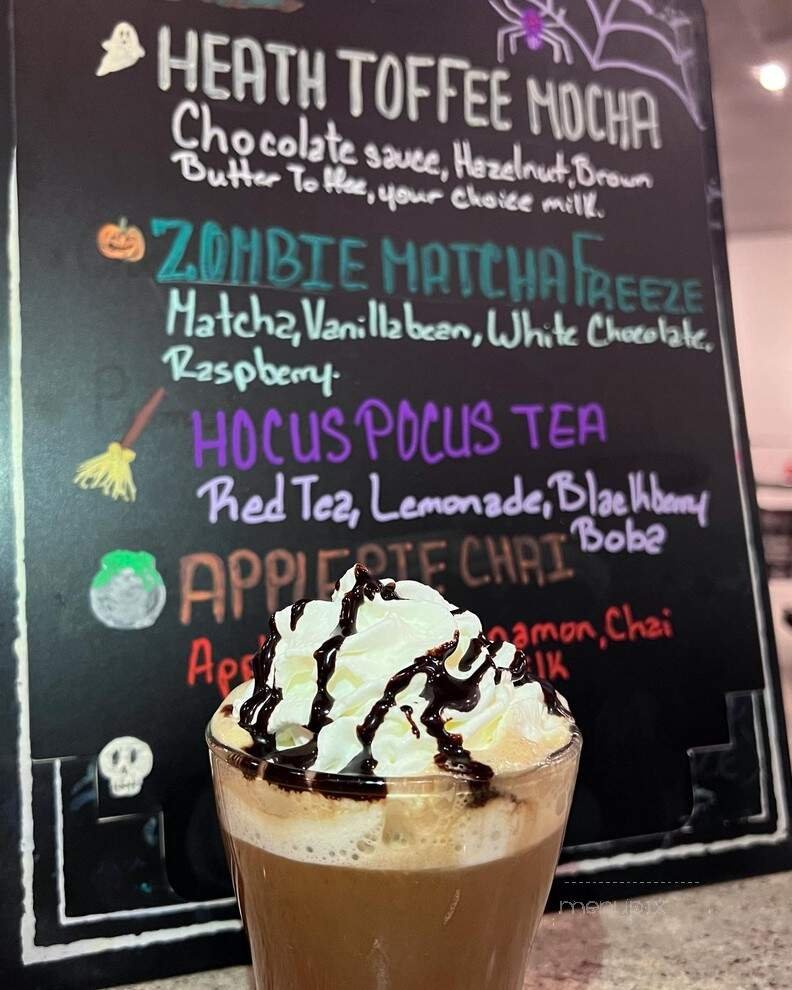 HEATH TOFFEE MOCHA
Chocolate sauce, Hazelnut, Brown
Butter Toffee, your choice milk.
ZOMBIE MATCHA FREEZE
Matcha, Vanilla bean, White Chocolate,
Raspberry.
HOCUS POCUS TEA
Red Tea, Lemonade, Blackberry
Boba
APPLE PIE CHAI
Chai
menupix